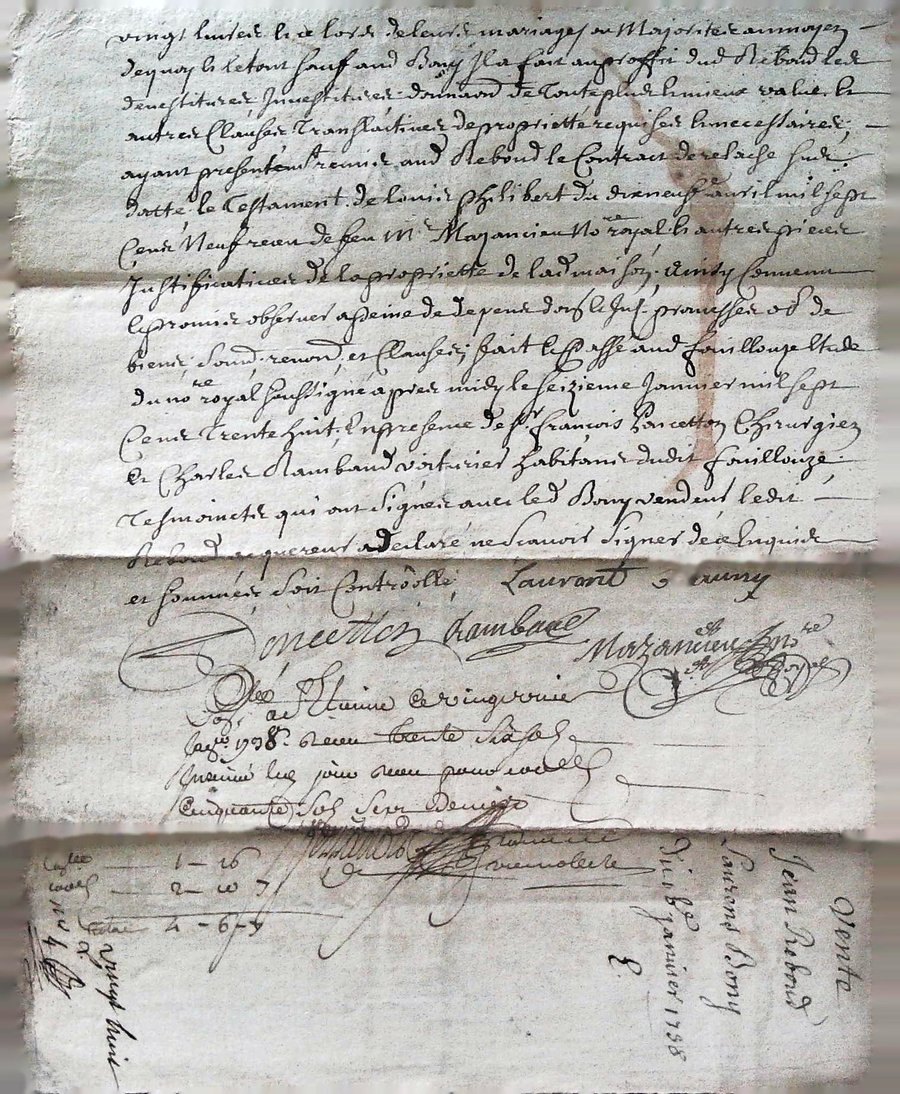 vingt livres et ce lors de leurs mariages ou Majorites au moyen
dequoy et le tout sauf aud Bony Il a fait au proffit dud Rebond les
devestitures Investitures donnaond de Toute plus et mieux value et
autres Clauses Translatives de propriette requises et necessaires,
ayant presentemt remis aud Rebond le Contract de relache sus
datté, le Testament de Louis Philibert du dixneufe avril mil sept
Cens Neuf receu de feu Mr Mazancieu Nore royal et autres pieces
Justificatives de la propriette de lad maison, Ainsy Convenu
et promis observer a peine de depens dos et Jnt. promesses ob de
biens, soud. renond. et Clauses, fait et passé aud fouillouze Etude
du nore royal soussigné apres midy le seizieme Janvier mil sept
Cens Trente huit, En presence de sr françois Poncetton Chirurgien
Et Charles Rambaud voiturier habitans dudit fouillouze
Tesmoincts qui ont signés avec led Bony vendeur ledit
Rebond acquereur a declaré ne scavoir signer de ce Enquis
et sommés soit Controollé Laurant bouny
Poncetton Rambaud Mazancieu nore Royal
Clé a St Etienne ce vingt
janv. 1738. receu trente six sols
jour receu pour
Cinquante sols
1 - 16
2 - 10 7
4 - 6 - 7
vingt huit
Vente
Jean Rebond
Laurens Bony
Du 16e Janvier 1738